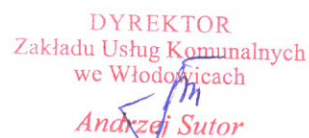 DYREKTOR
Zakładu Usług Komunalnych
we Włodowicach
Andrzej Sutor